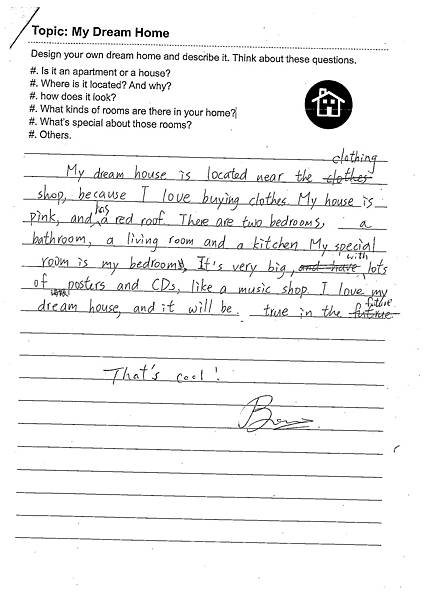 Topic: My Dream Home
Design your own dream home and describe it. Think about these questions.
#. Is it an apartment or a house?
#. Where is it located? And why?
#. how does it look?
#. What kinds of rooms are there in your home?
#. What's special about those rooms?
#. Others.
clothing
My dream house is located near the clothes
shop, because I love buying clothes. My house is
pink, and has a red roof. There are two bedrooms, a
bathroom, a living room and a kitchen. My special
room is my bedroom. It's very big, and have with lots
of posters and CDs, like a music shop. I love my
future
dream house, and it will be true in the
That's cool!